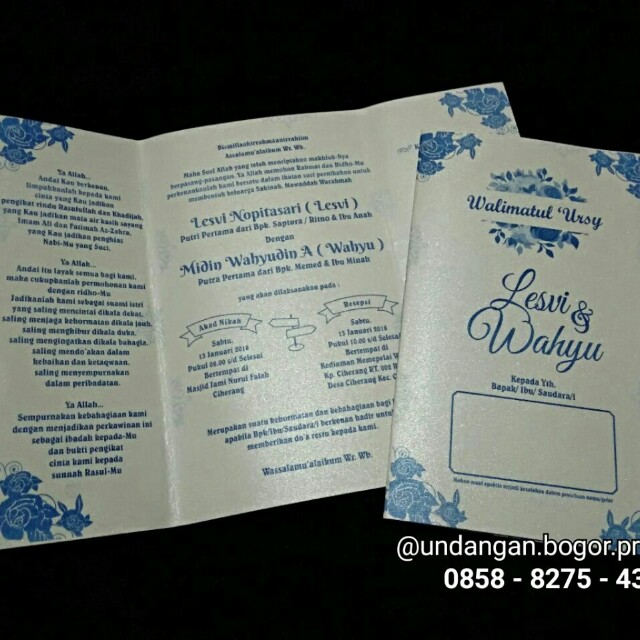 Ya Allah...
Andai Kau berkenan,
limpahkanlah kepada kami
cinta yang Kau jadikan
pengikat rindu Rasulullah dan Khadijah,
yang Kau jadikan mata air kasih sayang
Imam Ali dan Fatimah Az-Zahra,
yang Kau jadikan penghias
Nabi-Mu yang Suci.
Ya Allah...
Andai itu layak semua bagi kami,
maka cukupkanlah permohonan kami
dengan ridho-Mu
Jadikanlah kami sebagai suami istri
yang saling mencintai dikala dekat,
saling menjaga kehormatan dikala jauh,
saling menghibur dikala duka,
saling mengingatkan dikala bahagia,
saling mendo'akan dalam
kebaikan dan ketaqwaan,
saling menyempurnakan
dalam peribadatan.
Ya Allah...
Sempurnakan kebahagiaan kami
dengan menjadikan perkawinan ini
sebagai ibadah kepada-Mu
dan bukti pengikat
cinta kami kepada
sunnah Rasul-Mu
Bismillaahirrahmaanirrahiim
Assalamu'alaikum Wr. Wb.
Maha Suci Allah yang telah menciptakan makhluk-Nya
berpasang-pasangan. Ya Allah Rahmat dan Ridho-Mu
perkenankanlah kami bersatu dalam ikatan suci pernikahan untuk
membentuk keluarga Sakinah, Mawaddah Warahmah
Lesvi Nopitasari ( Lesvi )
Putri Pertama dari Bpk. Saptura / Ritno & Ibu Anah
Dengan
Midin Wahyudin A ( Wahyu )
Putra Pertama dari Bpk. Memed & Ibu Minah
yang akan dilaksanakan pada :
Akad Nikah
Sabtu,
13 Januari 2018
Pukul 08.00 s/d Selesai
Bertempat di
Masjid Jami Nurul Falah
Ciherang
Resepsi
Sabtu,
13 Januari 2018
Pukul 10.00 s/d Selesai
Bertempat di
Kediaman Mempelai
Kp. Ciherang RT. 002
Desa Ciherang Kec.
Merupakan suatu kehormatan dan kebahagiaan bagi
apabila Bpk/Ibu/Saudara/i berkenan hadir untuk
memberikan do'a restu kepada kami.
Wassalamu'alaikum Wr. Wb.
Walimatul 'Ursy
Lesvi
&
Wahyu
Kepada Yth.
Bapak/ Ibu/ Saudara/i
Mohon maaf apabila terjadi kesalahan dalam penulisan nama/gelar
@undangan.bogor.pr
0858 - 8275 - 43